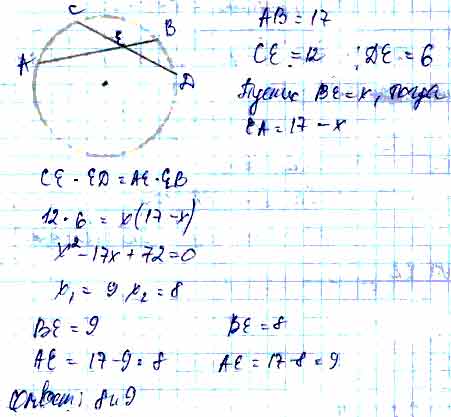 C
E
B
A
D
AB = 17
CE = 12 ; DE = 6
Пусть BE = x, тогда
EA = 17 - x
CE · ED = AE · EB
12 · 6 = x(17 - x)
x² - 17x + 72 = 0
x₁ = 9 x₂ = 8
BE = 9 BE = 8
AE = 17 - 9 = 8 AE = 17 - 8 = 9
Ответ: 8 и 9